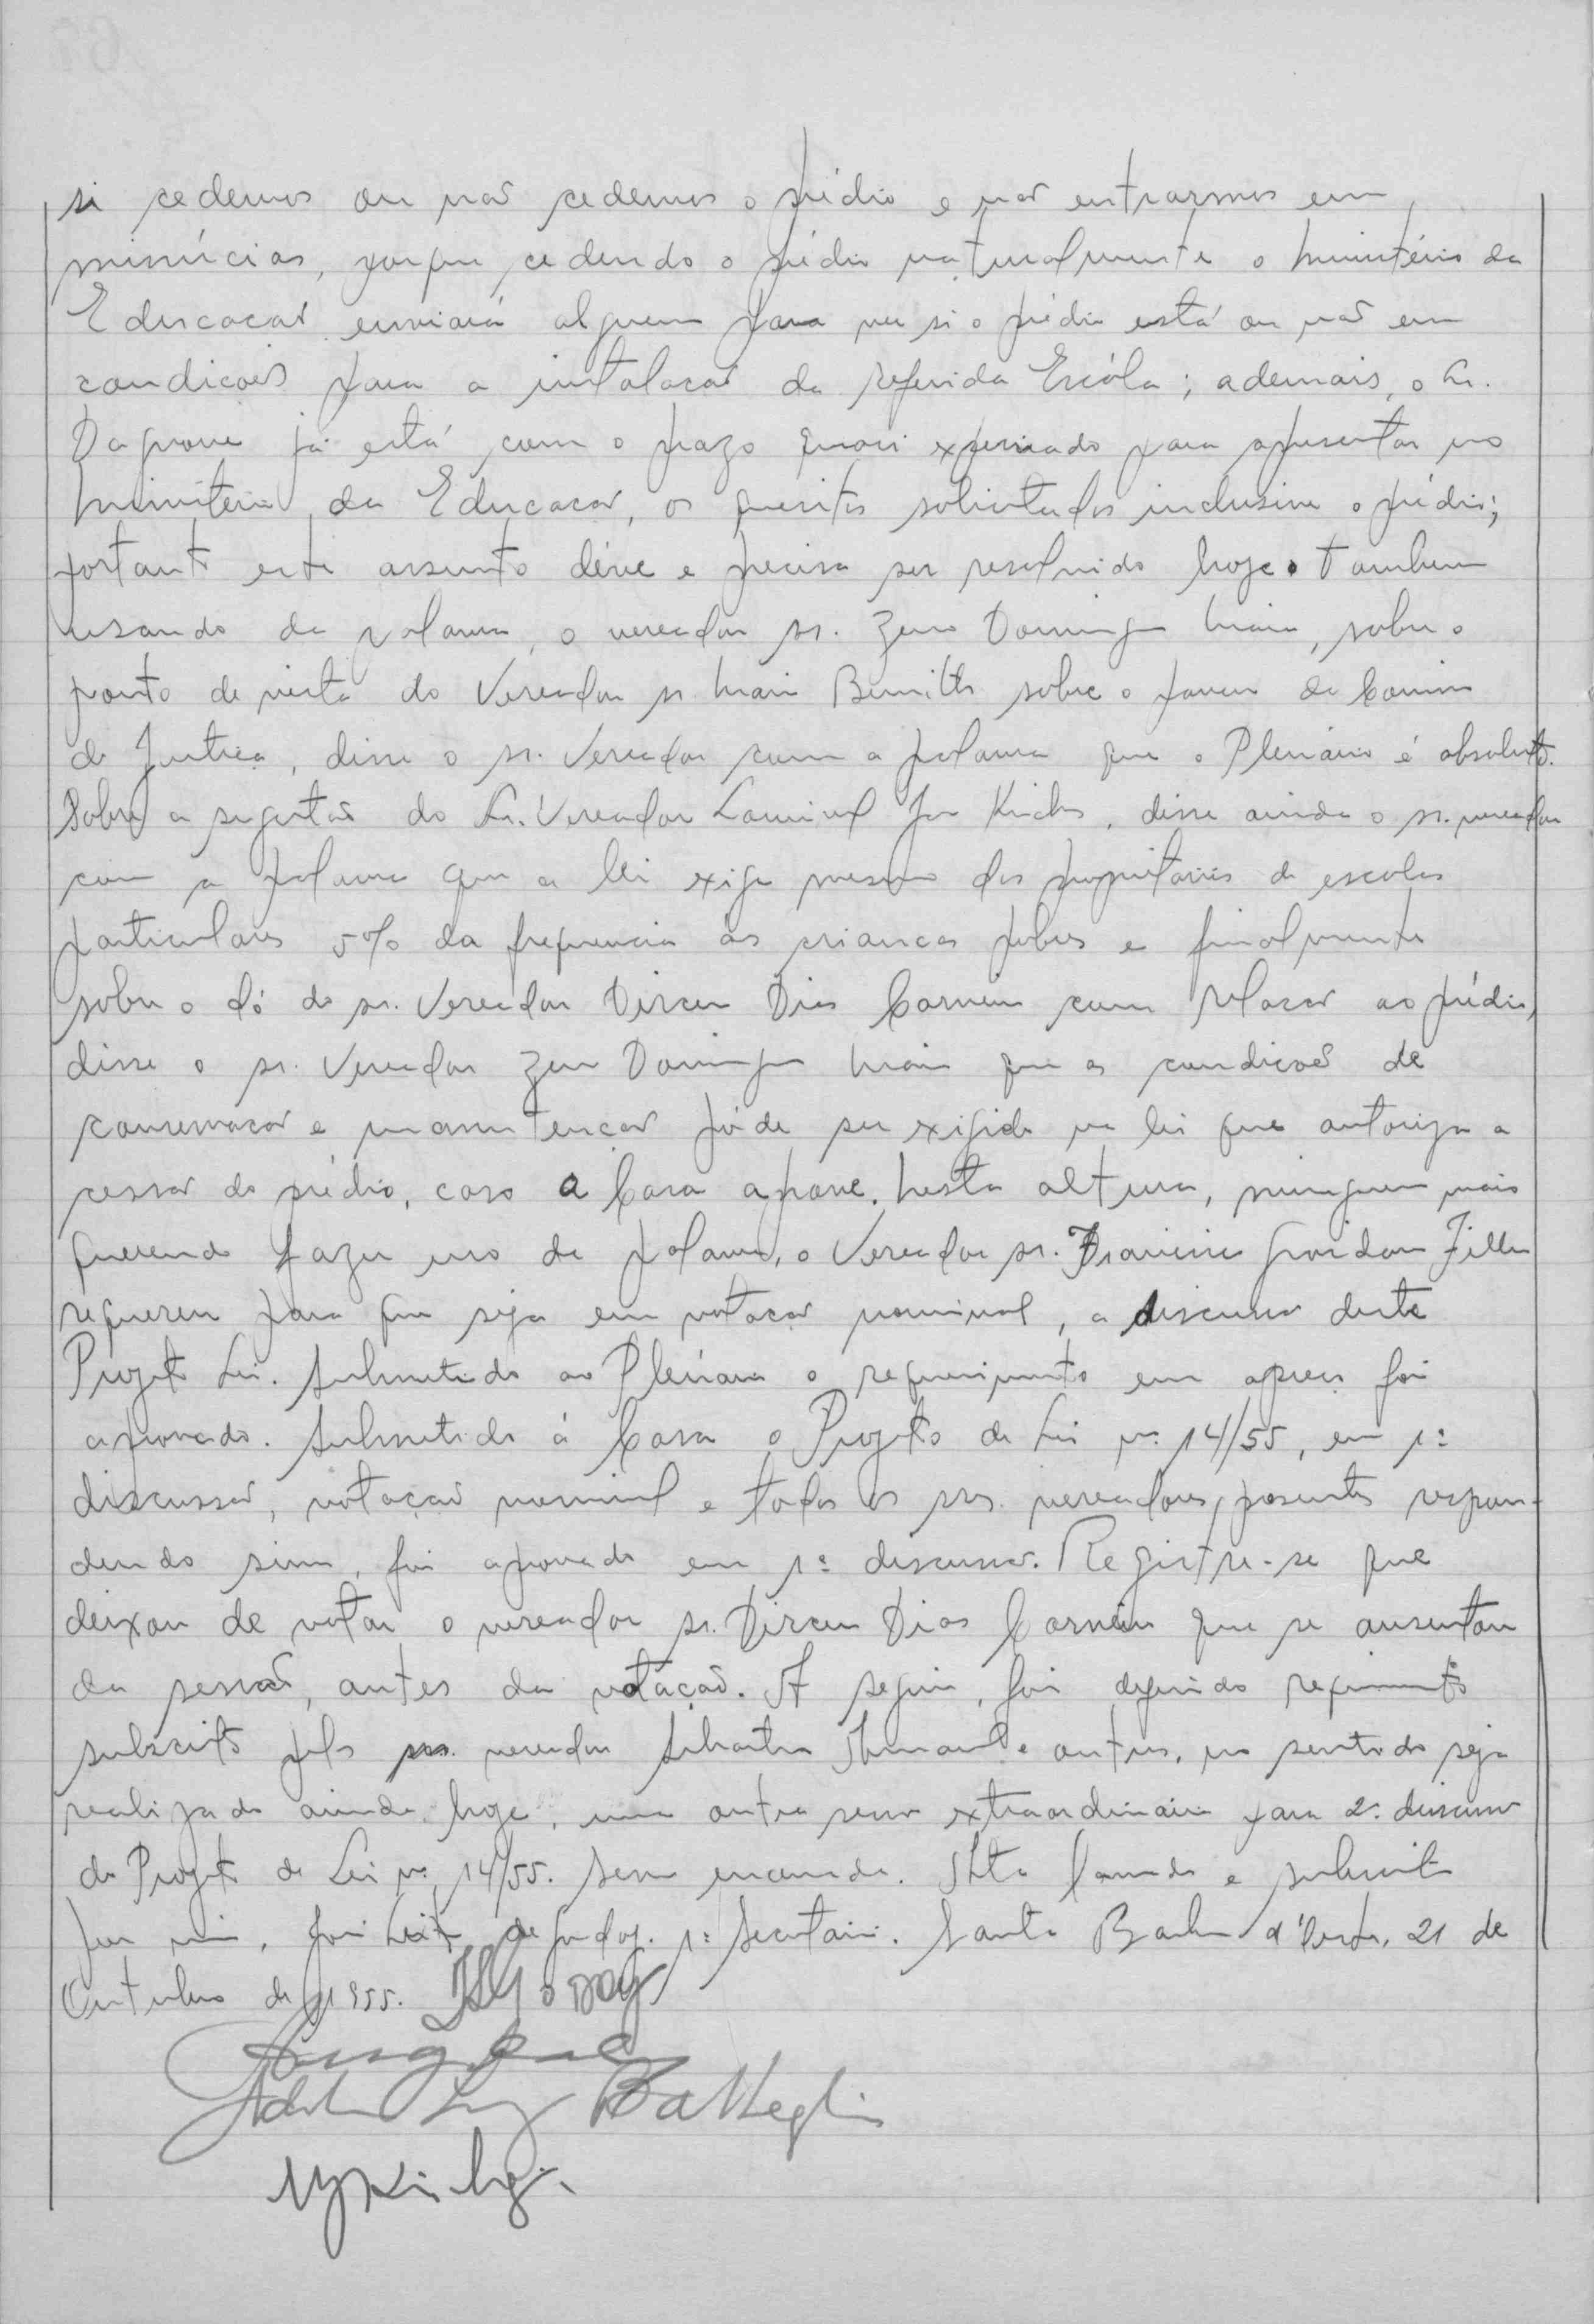 si cedemos ou não cedemos o prédio e não entrarmos em
minúcias, porque cedendo o prédio naturalmente o Ministério da
Educacão enviará alguem para ver si o prédio está ou não em
condicoes para a instalacão da referida Escóla; ademais, o Sr.
Dagnone já está com o prazo quasi expirado para apresentar no
Ministério da Educacão, os quesitos solicitados inclusive o prédio;
portanto este assunto déve e precisa ser resolvido hoje. Tambem
usando da palavra, o vereador sr. Zeno Domingos Maia, sobre o
ponto de vista do Vereador sr. Mario Benith sobre o parecer da Comissão
de Justiça, disse o sr. Vereador com a palavra que o Plenário é absoluto.
Sobre a sugestão do Sr. Vereador Lourival José Kiche, disse ainda o sr. vereador
com a palavra que a lei exige mesmo dos proprietários de escolas
particulares 5% da frequencia ás criancas pobres e finalmente
sobre o dó do sr. Vereador Dirceu Dias Carneiro com relacão ao prédio,
disse o sr. Vereador Zeno Domingos Maia que as condicoes de
conservacão e manutencão póde ser exigida na lei que autoriza a
cessão do prédio, caso a Casa aprove. Nesta altura, ninguem mais
querendo fazer uso da palavra, o Vereador sr. Francisco Filho
requereu para que seja em votacão nominal, a discussão deste
Projeto Lei. Submetido ao Plenário o requerimento em apreco foi
aprovado. Submetido á Casa o Projeto de Lei nº 14/55, em 1ª
discussão, votaçao nominal e todos os srs. vereadores presentes respon-
dendo sim, foi aprovado em 1ª discussão. Registre-se que
deixou de votar o vereador sr. Dirceu Dias Carneiro que se ausentou
da sessão, antes da votaçao. A seguir, foi deferido requerimento
subscrito pelo sr. vereador e outros, no sentido seja
realizada ainda hoje, uma outra sessão extraordinária para 2ª discussão
do Projeto de Lei nº 14/55. Sem emenda. Ata lavrada e subscrita
por mim, José Leite de Godoy. 1º Secretário. Santa Barbara d'Oeste, 21 de
Outubro de 1955. JLGodoy
Battaglia